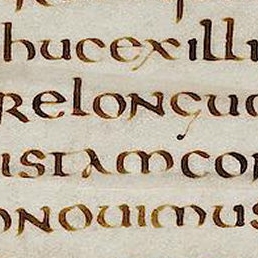 hucexilli
relongua
istamcon
onouimus